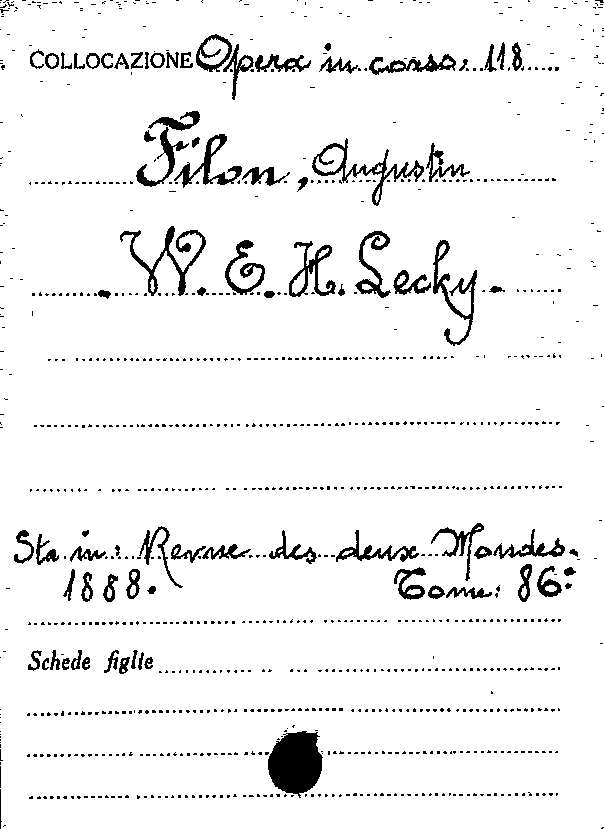 COLLOCAZIONE Opera in corso: 118
Filon, Augustin
W. E. H. Lecky.
Sta in: Revue des deux Mondes.
1888. Tome: 86:
Schede figlie